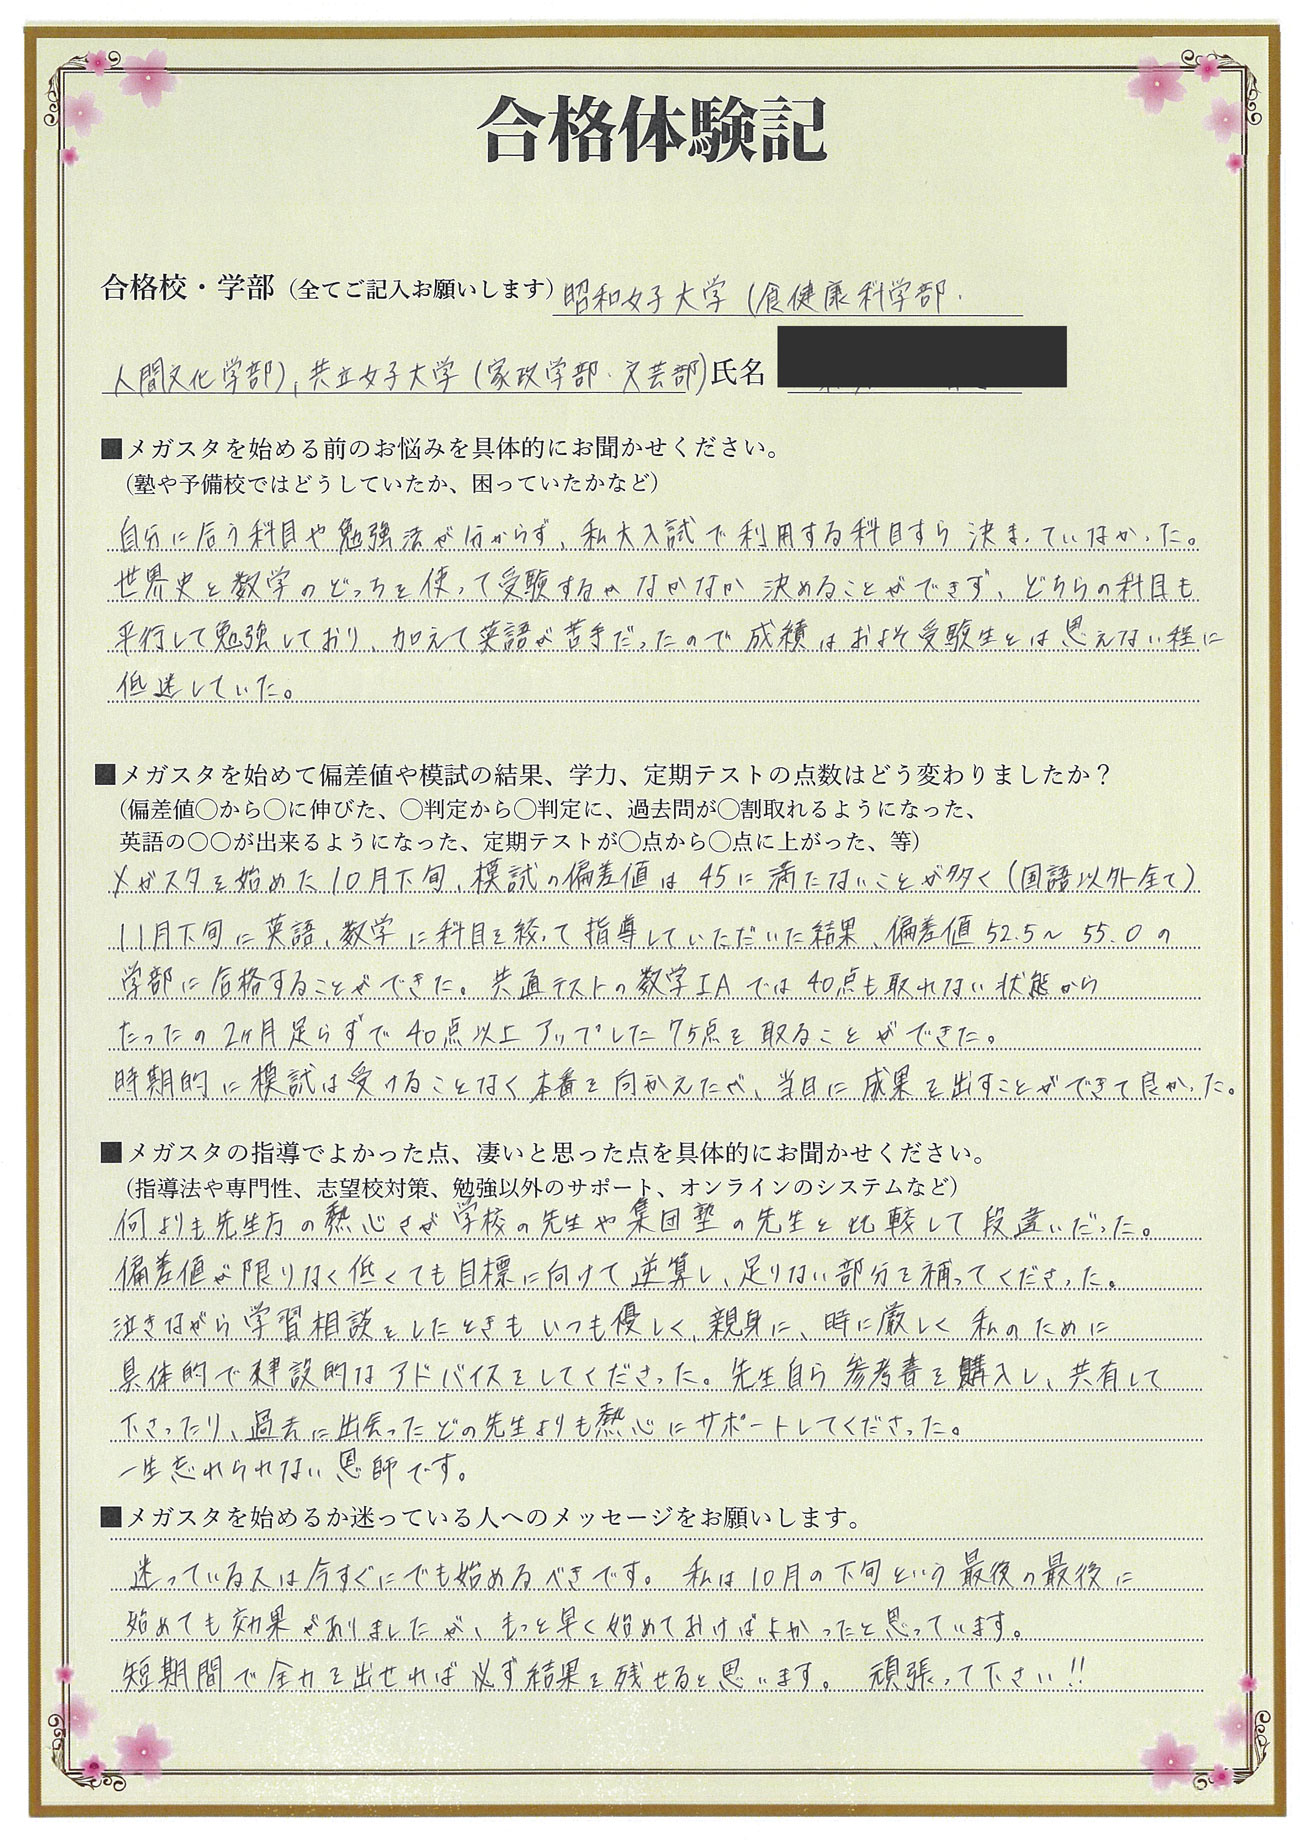 合格体験記
合格校・学部（全てご記入お願いします）昭和女子大学（食健康科学部・
人間文化学部），共立女子大学（家政学部・文芸部）氏名
■メガスタを始める前のお悩みを具体的にお聞かせください。
（塾や予備校ではどうしていたか、困っていたかなど）
自分に合う科目や勉強法が分からず、私大入試で利用する科目すら決まっていなかった。
世界史と数学のどっちを使って受験するかなかなか決めることができず、どちらの科目も
平行して勉強しており、加えて英語が苦手だったので成績はおよそ受験生とは思えない程に
低迷していた。
■メガスタを始めて偏差値や模試の結果、学力、定期テストの点数はどう変わりましたか？
（偏差値〇から〇に伸びた、〇判定から〇判定に、過去問が〇割取れるようになった、
英語の〇〇が出来るようになった、定期テストが〇点から〇点に上がった、等）
メガスタを始めた10月下旬、模試の偏差値は45に満たないことが多く（国語以外全て）
11月下旬に英語、数学に科目を絞って指導していただいた結果、偏差値52.5～55.0の
学部に合格することができた。共通テストの数学IAでは40点も取れない状態から
たったの2ヶ月足らずで40点以上アップした75点を取ることができた。
時期的に模試は受けることなく本番を向かえたが、当日に成果を出すことができて良かった。
■メガスタの指導でよかった点、凄いと思った点を具体的にお聞かせください。
（指導法や専門性、志望校対策、勉強以外のサポート、オンラインのシステムなど）
何よりも先生方の熱心さが学校の先生や集団塾の先生と比較して段違いだった。
偏差値が限りなく低くても目標に向けて逆算し、足りない部分を補ってくださった。
泣きながら学習相談をしたときもいつも優しく、親身に、時に厳しく私のために
具体的で建設的なアドバイスをしてくださった。先生自ら参考書を購入し、共有して
下さったり、過去に出会ったどの先生よりも熱心にサポートしてくださった。
一生忘れられない恩師です。
■メガスタを始めるか迷っている人へのメッセージをお願いします。
迷っている人は今すぐにでも始めるべきです。私は10月の下旬という最後の最後に
始めても効果がありましたが、もっと早く始めておけばよかったと思っています。
短期間で全力を出せれば必ず結果を残せると思います。頑張って下さい!!